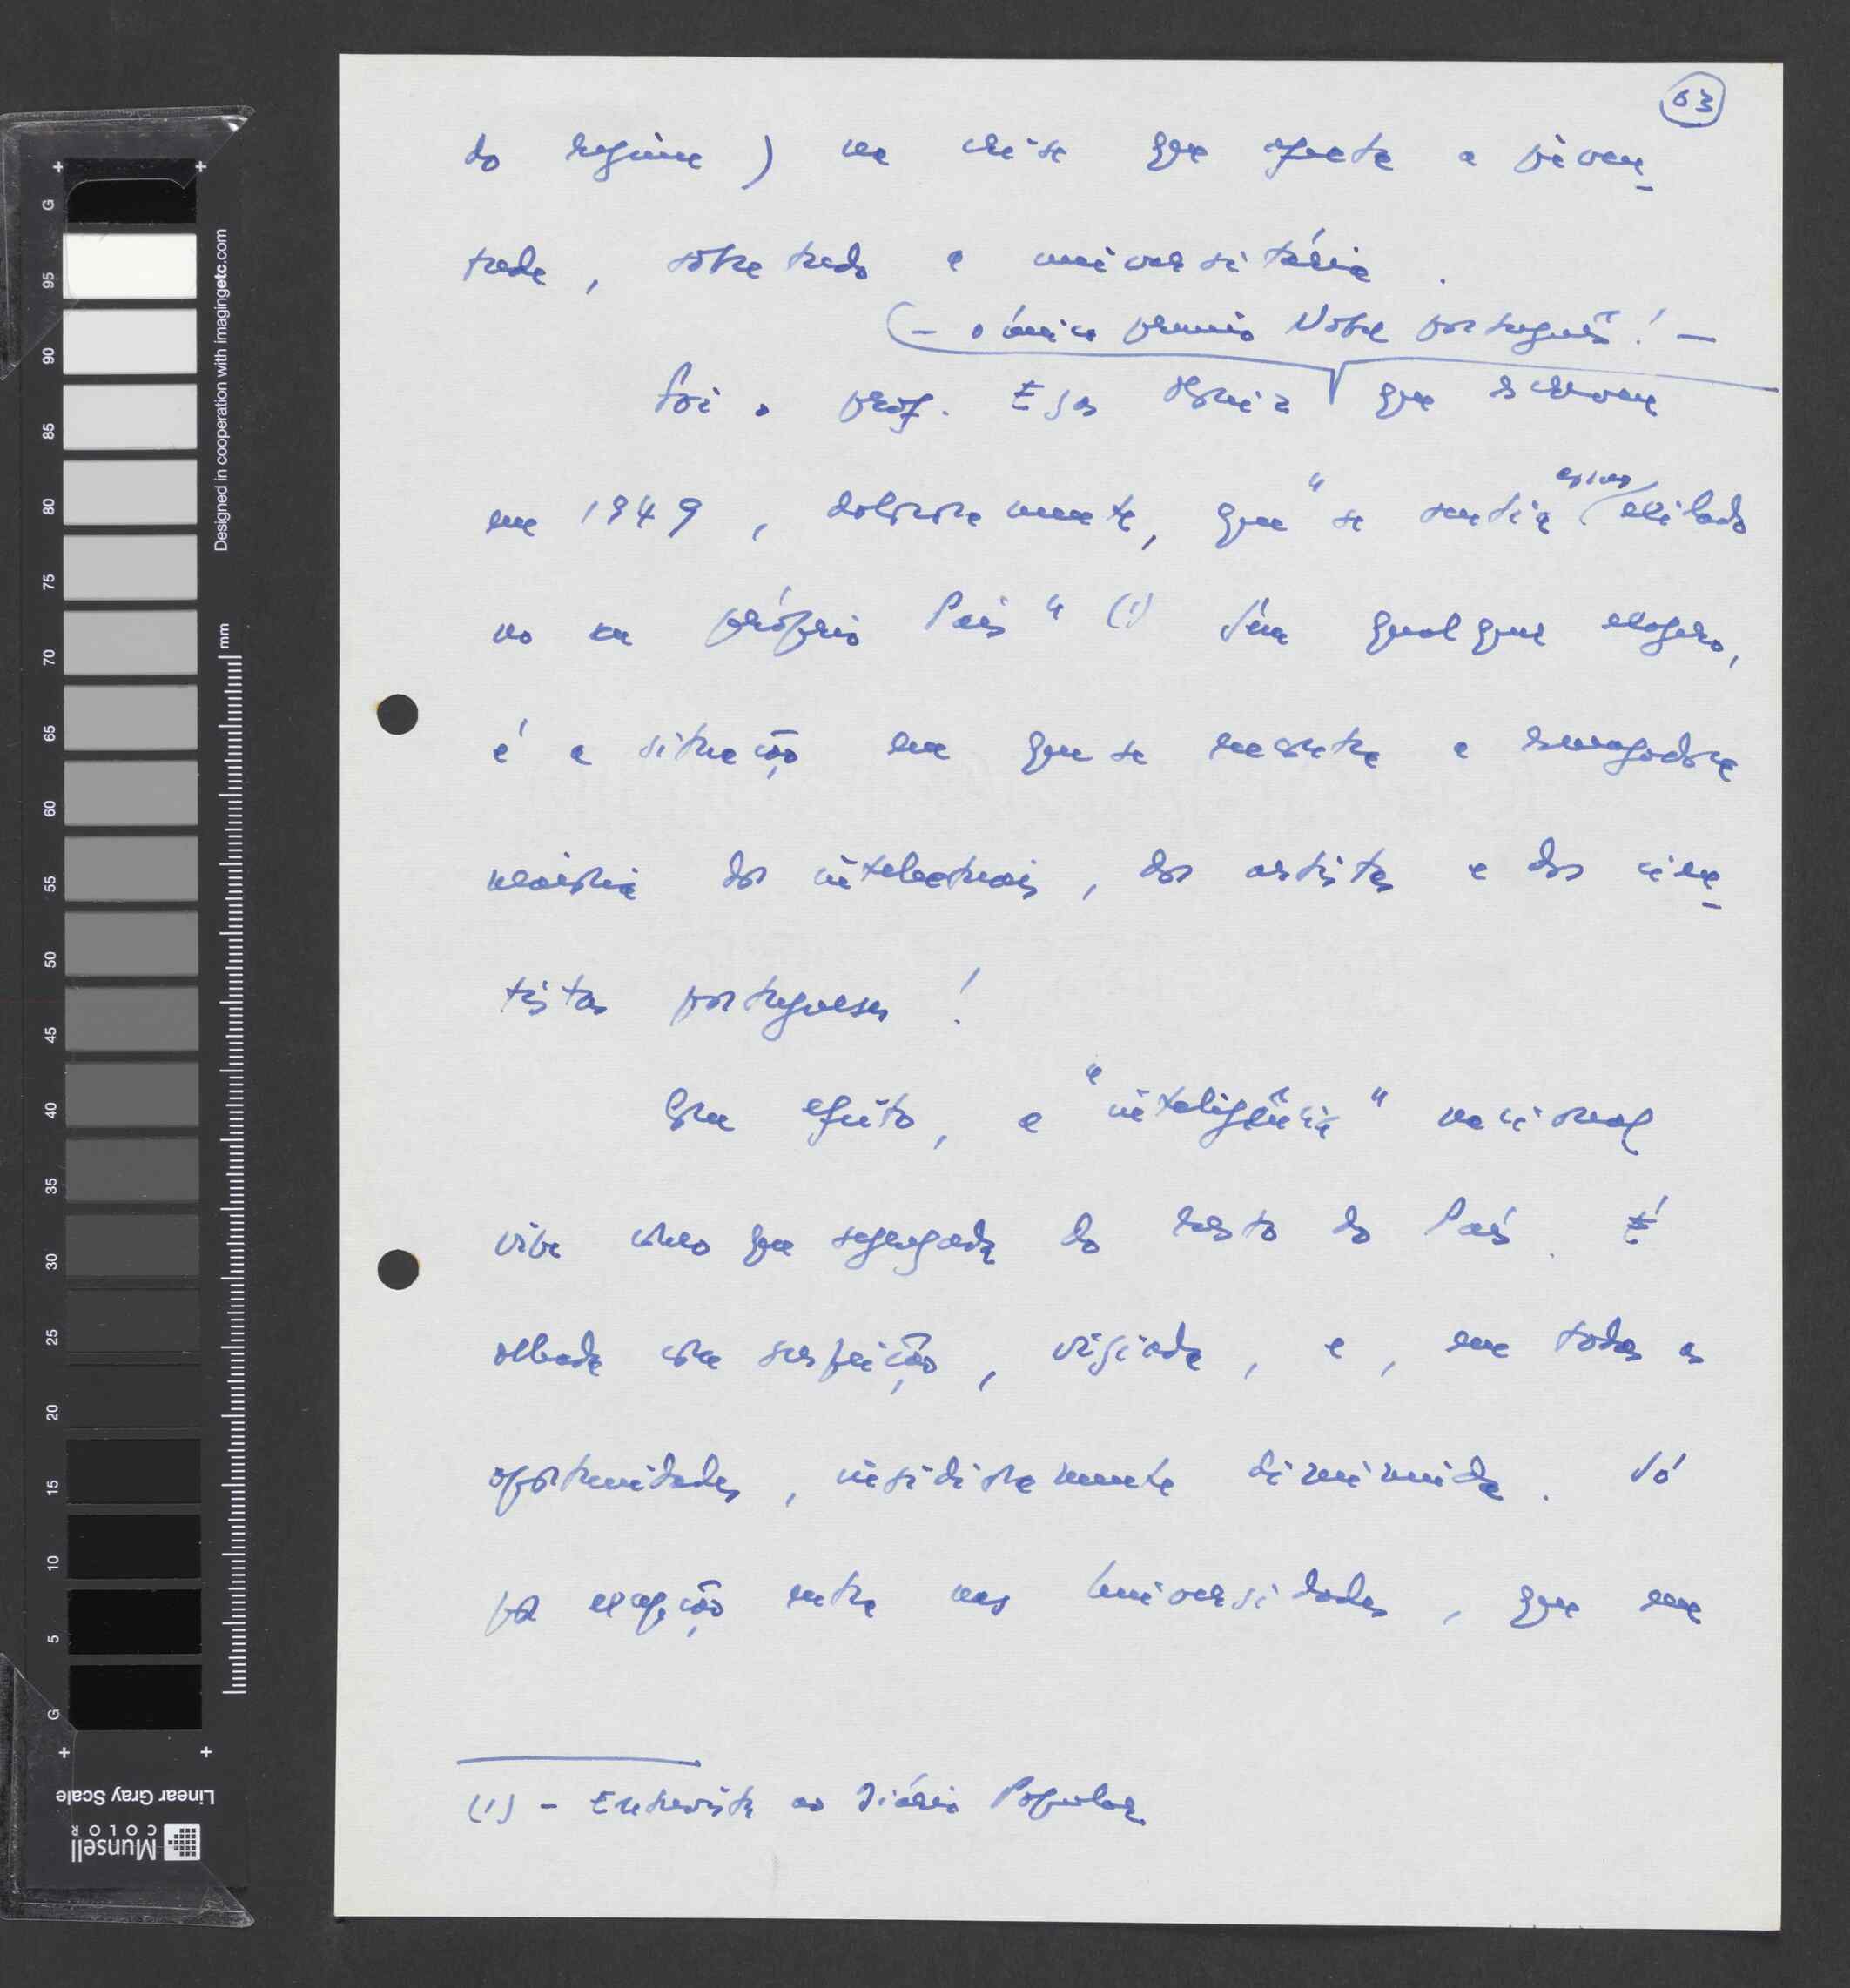 63
do regime) na crise que afecta a juven-
tude, sobretudo a universitária.
(- o único prémio Nobel português! -
Foi o prof. Egas Moniz que escreveu
em 1949, dolorosamente, que "se sentia como exilado
no seu próprio País" (1) Sem qualquer exagero,
é a situação em que se encontra a esmagadora
maioria dos intelectuais, dos artistas e dos cien-
tistas portugueses!
Com efeito, a "inteligência" nacional
vive como que segregada do resto do País. É
olhada com suspeição, vigiada, e, em todas as
oportunidades, insidiosamente diminuída. Só
por excepção entra nas Universidades, que em
(1) - Entrevista ao Diário Popular
G 95 90 85 80 75 70 65 60 55 50 45 40 35 30 25 20 15 10 5 G
mm
Designed in cooperation with imagingetc.com
Linear Gray Scale
Munsell
COLOR